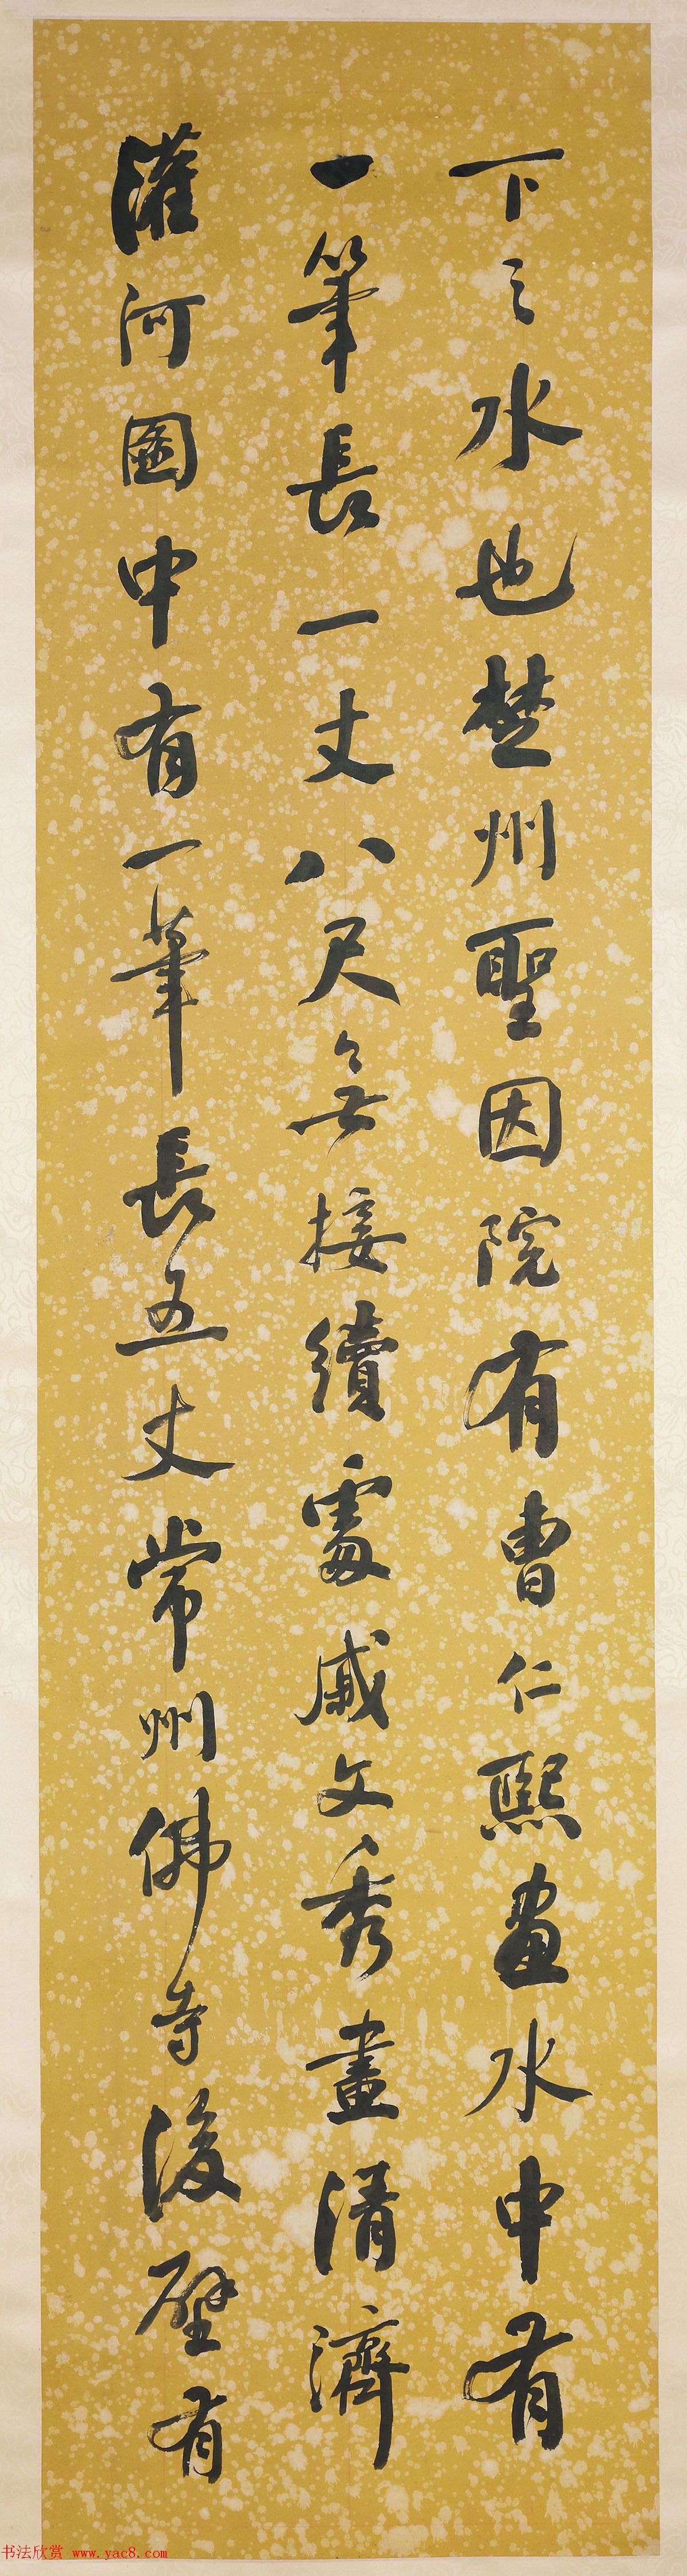 下之水也楚州聖因院有曹仁熙畫水中有
一筆長一丈八尺無接續處戚文秀畫清濟
灌河圖中有一筆長五丈常州佛寺後壁有
书法欣赏 www.yac8.com